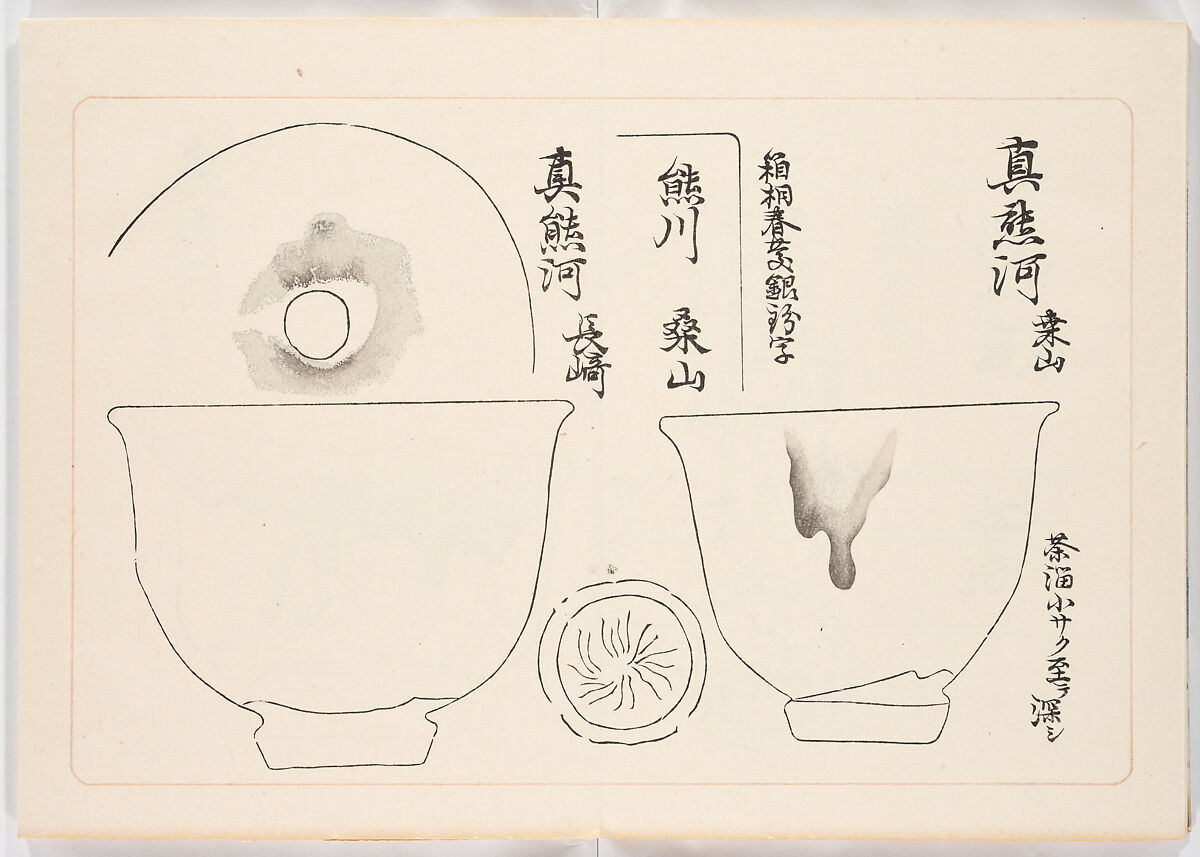 真熊河
桑山
茶溜小サク至テ深シ
箱桐春慶銀粉字
熊川　桑山
真熊河
長崎